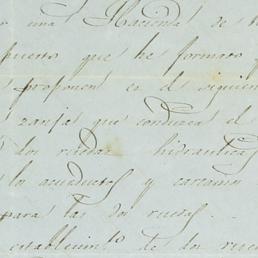 una Hacienda de
puerto que he formado
proponen es el siguien
zanja que conducea el
dos ruedas hidraulicas
los acueductos y carcamos
para las dos ruedas.
establecim.to de dos rue